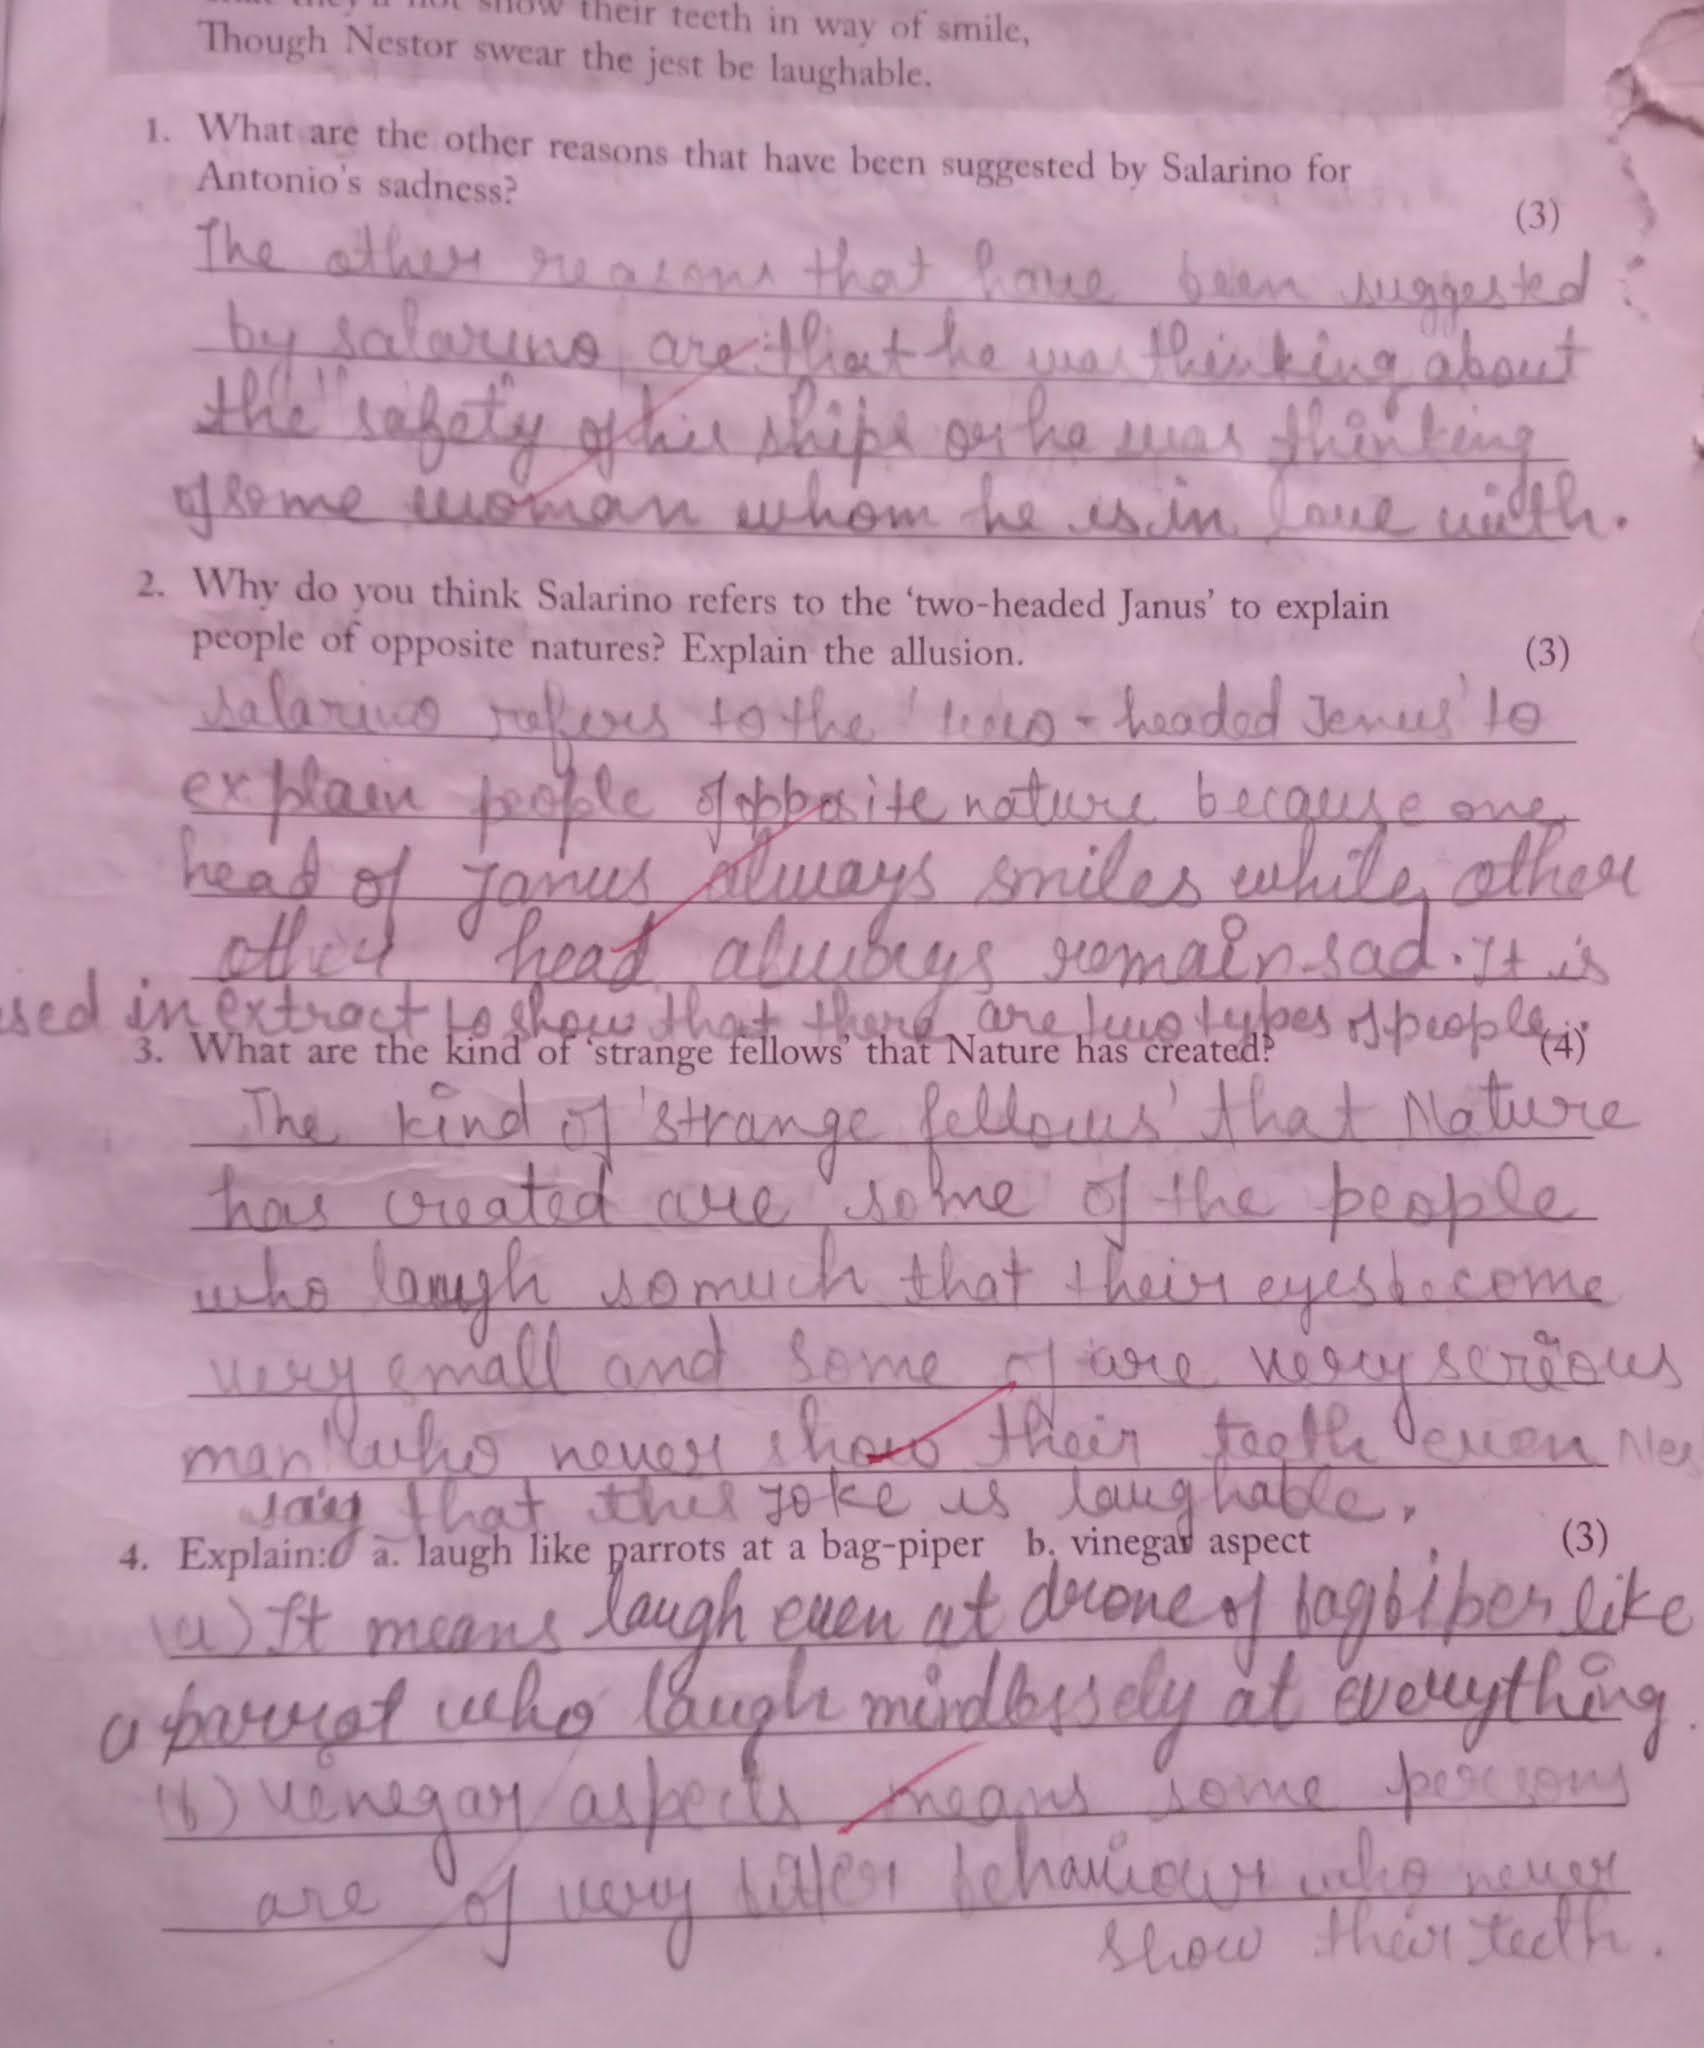 not show their teeth in way of smile,
Though Nestor swear the jest be laughable.
1. What are the other reasons that have been suggested by Salarino for
Antonio's sadness?
(3)
The other reasons that have been suggested
by salarino are that he was thinking about
the "safety" of his ships or he was thinking
of some woman whom he is in love with.
2. Why do you think Salarino refers to the 'two-headed Janus' to explain
people of opposite natures? Explain the allusion.
(3)
salarino refers to the 'two-headed Janus' to
explain people of opposite nature because one
head of Janus always smiles while other
other head always remain sad. It is
used in extract to show that there are two types of people.
3. What are the kind of 'strange fellows' that Nature has created?
(4)
The kind of 'strange fellows' that Nature
has created are some of the people
who laugh so much that their eyes become
very small and some of are very serious
man who never show their teeth even
say that this joke is laughable.
4. Explain: a. laugh like parrots at a bag-piper b. vinegar aspect
(3)
(a) It means laugh even at drone of bagpiper like
a parrot who laugh mindlessely at everything.
(b) vinegar aspects means some persons
are of very bitter behaviour who never
show their teeth.